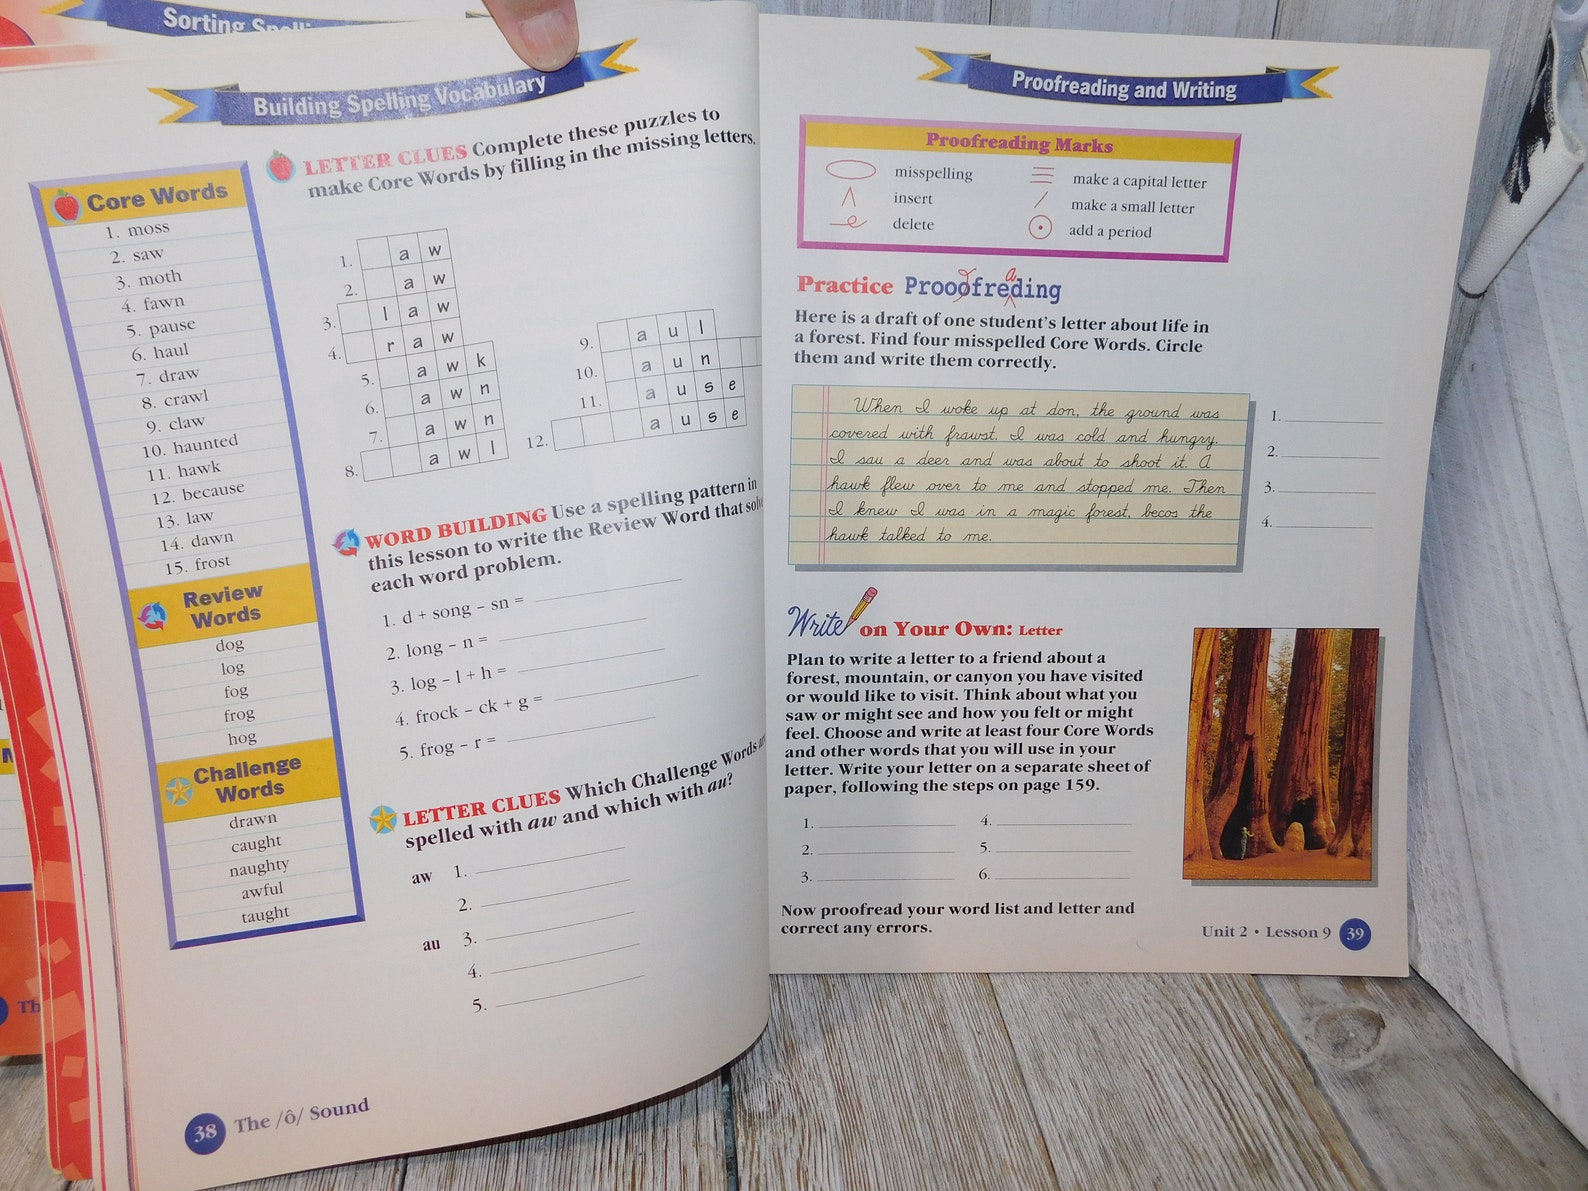 Sorting Spelli
Building Spelling Vocabulary
LETTER CLUES Complete these puzzles to
make Core Words by filling in the missing letters.
Core Words
1. moss
2. saw
3. moth
4. fawn
5. pause
6. haul
7. draw
8. crawl
9. claw
10. haunted
11. hawk
12. because
13. law
14. dawn
15. frost
Review
Words
dog
log
fog
frog
hog
Challenge
Words
drawn
caught
naughty
awful
taught
1. a w
2. a w
3. l a w
4. r a w
5. a w k
6. a w n
7. a w n
8. a w l
9. a u l
10. a u n
11. a u s e
12. a u s e
WORD BUILDING Use a spelling pattern in
this lesson to write the Review Word that solv
each word problem.
1. d + song – sn =
2. long – n =
3. log – l + h =
4. frock – ck + g =
5. frog – r =
LETTER CLUES Which Challenge Words a
spelled with aw and which with au?
aw 1.
2.
au 3.
4.
5.
38 The /ô/ Sound
Proofreading and Writing
Proofreading Marks
misspelling
insert
delete
make a capital letter
make a small letter
add a period
Practice Prooofreding
a
Here is a draft of one student's letter about life in
a forest. Find four misspelled Core Words. Circle
them and write them correctly.
When I woke up at don, the ground was
covered with frawst. I was cold and hungry.
I sau a deer and was about to shoot it. A
hawk flew over to me and stopped me. Then
I knew I was in a magic forest, becos the
hawk talked to me.
1.
2.
3.
4.
Write on Your Own: Letter
Plan to write a letter to a friend about a
forest, mountain, or canyon you have visited
or would like to visit. Think about what you
saw or might see and how you felt or might
feel. Choose and write at least four Core Words
and other words that you will use in your
letter. Write your letter on a separate sheet of
paper, following the steps on page 159.
1.
2.
3.
4.
5.
6.
Now proofread your word list and letter and
correct any errors.
Unit 2 • Lesson 9 39
Th